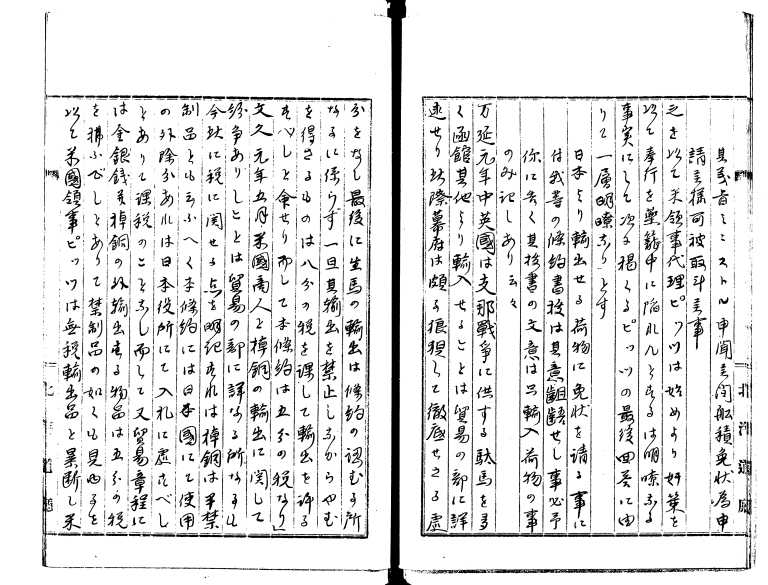 其段皆ミニストル申聞ヨリ問船積免状為申
請ヨ様可被取斗ヨ事
之を以て米領事代理ピッツは始めより奸策を
以て奉行を薬籠中に陥れんとせるは明瞭なる
事実にして次に掲くるピッツの最後回答に由
りて一層明瞭なりとす
日本より輸出せる荷物に免状を請る事に
付我等の條約書後は其意齟齬せし事必予
你に告く其後書の文意は只輸入荷物の事
のみ記しあり云々
万延元年中英國は支那戰争に供する駄馬を多
く函館其他より輸入せることは貿易の部に詳
述せり此際幕府は頗る狼狽して徹底せさる處
分をなし最後に生馬の輸出は條約の認むる所
なるに係らす一旦其輸出を禁止しるからやむ
を得さるものは八分の税を課して輸出を許る
すべしと令せり而して本條約は五分の税なり
文久元年五月米國商人と棹銅の輸出に関して
紛争ありしことは貿易の部に詳なる所なるか
今玆に税に関せる点を明記すれは棹銅は半禁
制品とも云ふへく本條約には日本國にて使用
の外除かあれは日本役所にて入札に處すべし
とありて課税のことなし而して又貿易章程に
は金銀銭并棹銅の外輸出する物品は五分の税
を拂ふべしとありて禁制品の如くも見ゆるを
以て米國領事ピッツは無税輸出品と罣断し米